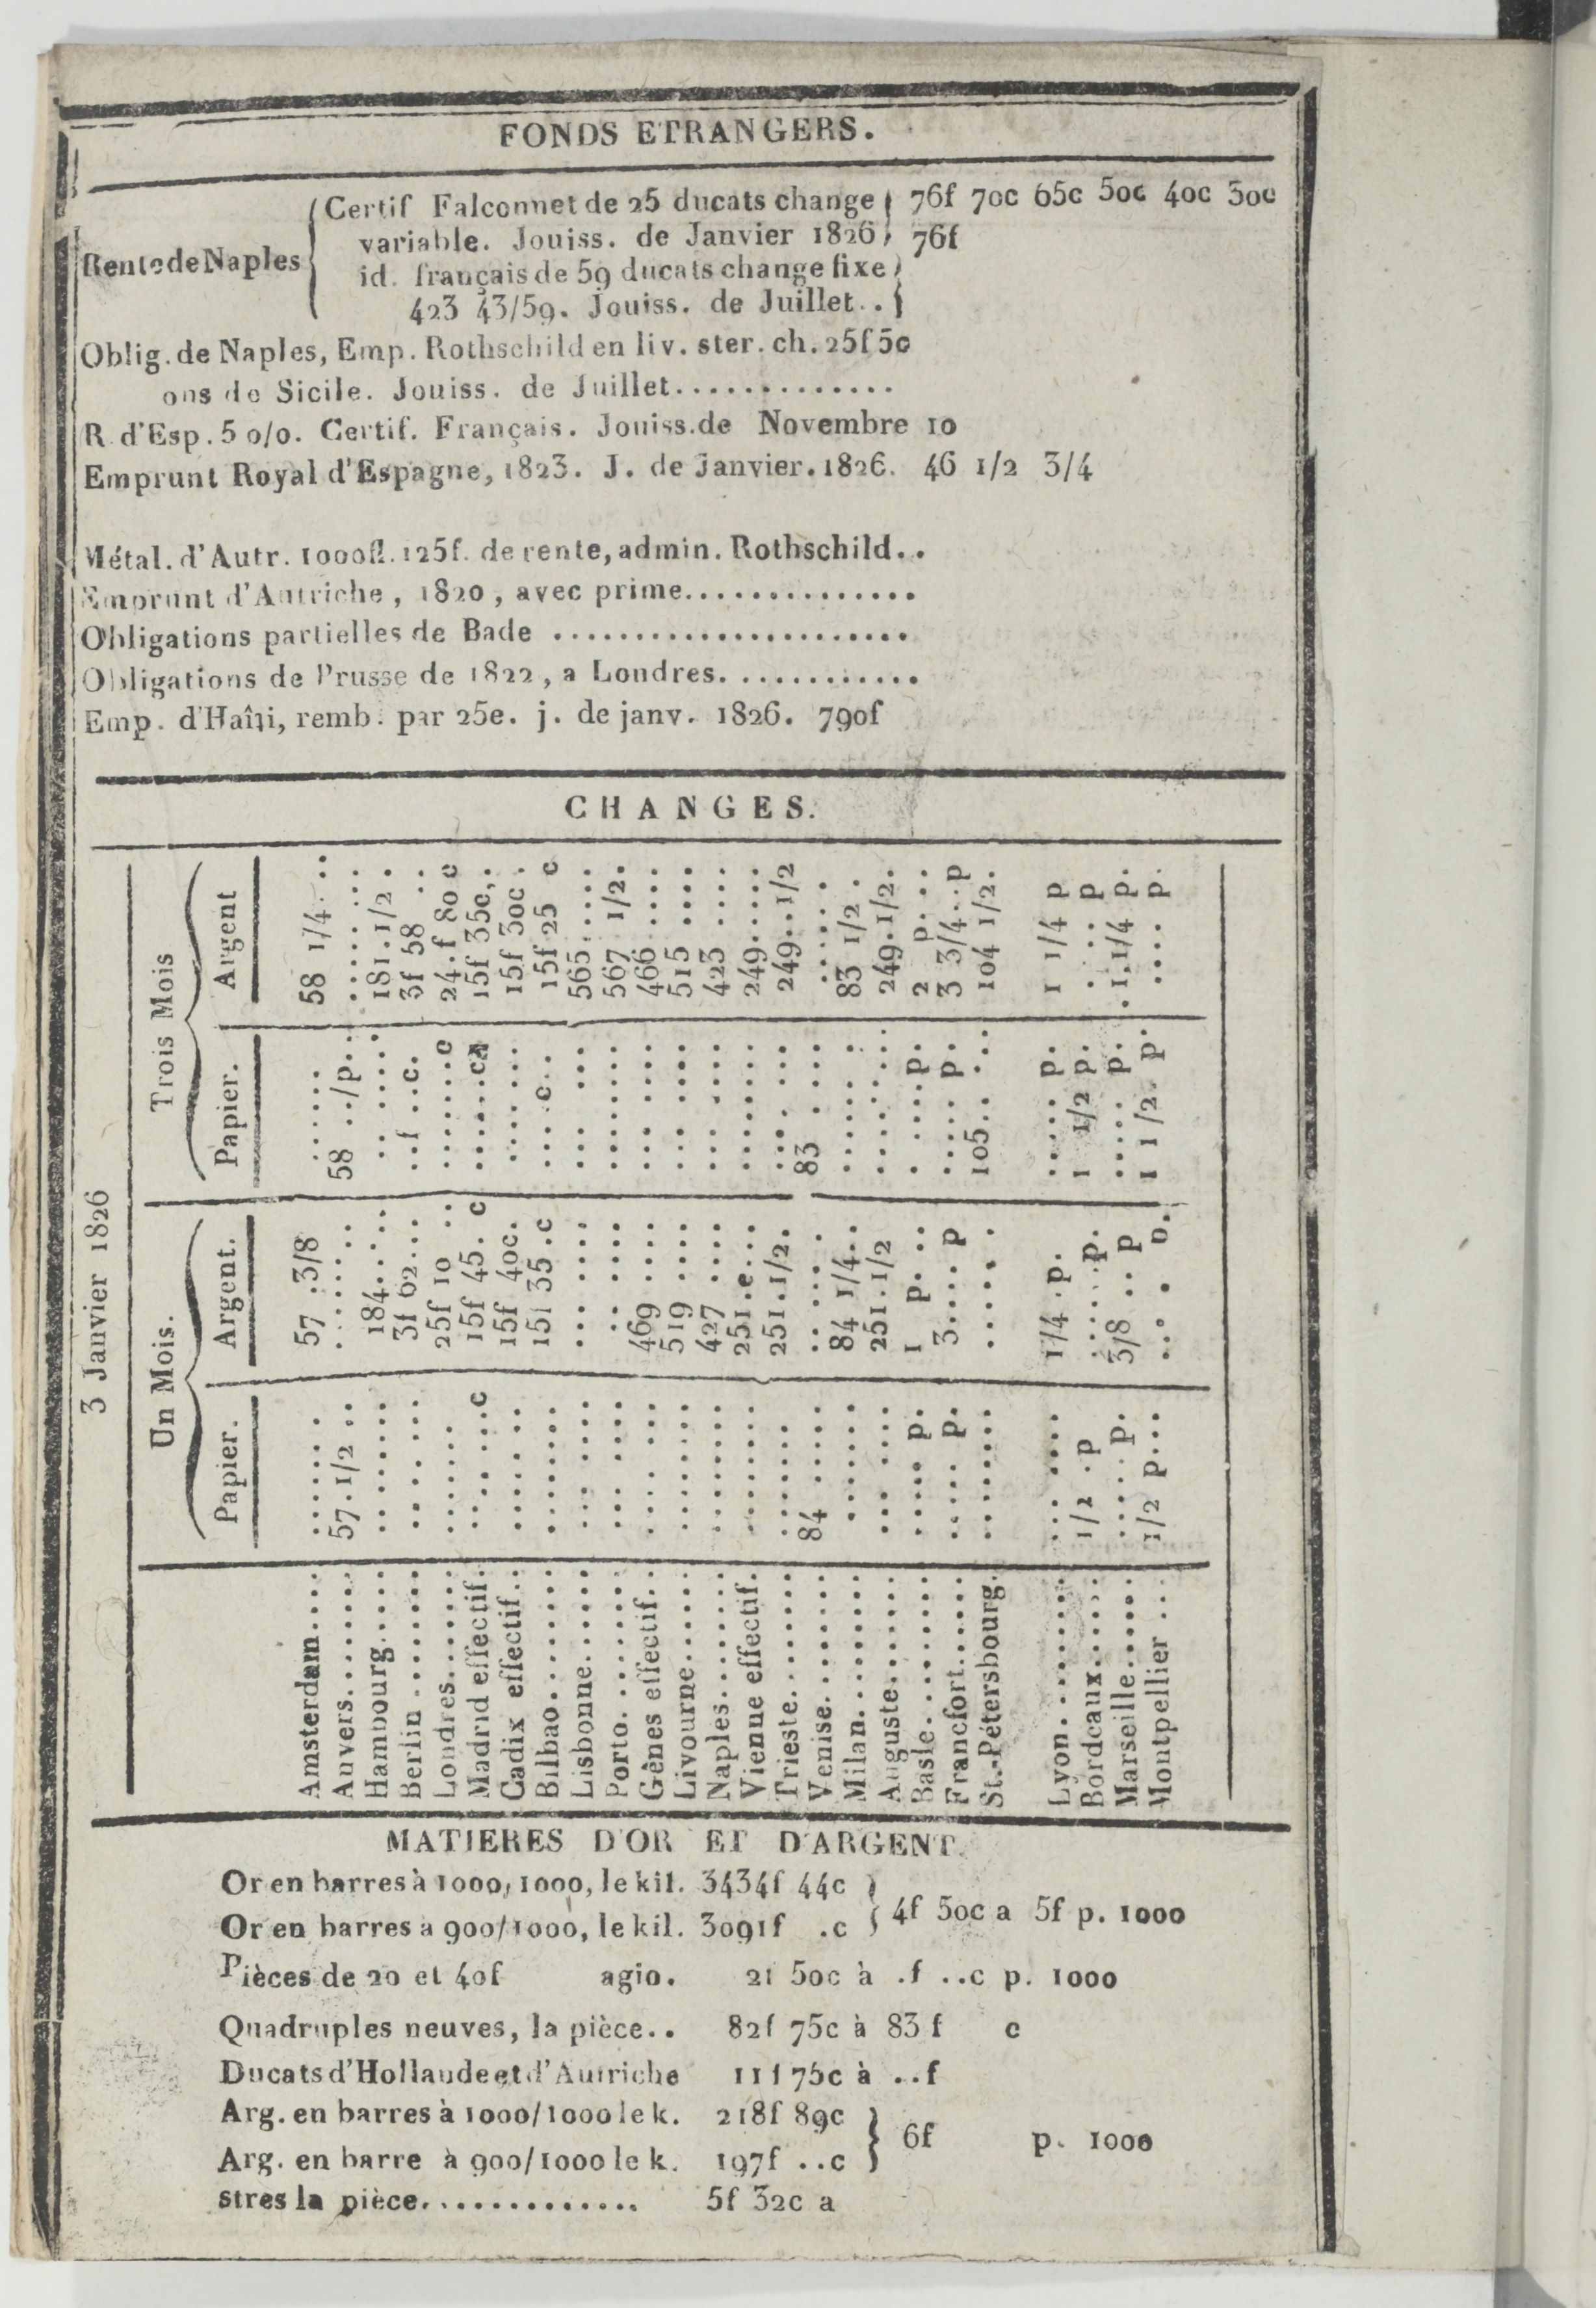 FONDS ETRANGERS.
Rente de Naples
Certif Falconnet de 25 ducats change
variable. Jouiss. de Janvier 1826
76f 70c 65c 50c 40c 30c
76f
id. français de 59 ducats change fixe
423 43/59. Jouiss. de Juillet..
Oblig. de Naples, Emp. Rothschild en liv. ster. ch. 25f 50
ons de Sicile. Jouiss. de Juillet.............
R. d'Esp. 5 0/0. Certif. Français. Jouiss. de Novembre 10
Emprunt Royal d'Espagne, 1823. J. de Janvier. 1826. 46 1/2 3/4
Métal. d'Autr. 1000fl. 125f. de rente, admin. Rothschild..
Emprunt d'Autriche, 1820, avec prime..............
Obligations partielles de Bade ......................
Obligations de Prusse de 1822, a Londres............
Emp. d'Haîti, remb. par 25e. j. de janv. 1826. 790f
CHANGES.
3 Janvier 1826
Un Mois. Trois Mois
Papier. Argent. Papier. Argent
Amsterdam.... ...... 57 .3/8 ...... 58 1/4 ..
Anvers....... 57. 1/2 .. ...... 58 ../p.. ......
Hambourg..... ...... 184..... ...... 181.1/2 .
Berlin ....... ...... 3f 62... ...f ..c. 3f 58 ..
Londres...... ...... 25f 10 .. ......c 24.f 80 c
Madrid effectif. ......c 15f 45. c ......c 15f 35c,.
Cadix effectif.. ...... 15f 40c. ...... 15f 30c .
Bilbao....... ...... 15f 35 .c ....c.. 15f 25 c
Lisbonne...... ...... ...... ...... 565.....
Porto. ....... ...... ...... ...... 567 1/2.
Gênes effectif.. ...... 469 .... ...... 466 ....
Livourne...... ...... 519 .... ...... 515 ....
Naples....... ...... 427 .... ...... 423 ....
Vienne effectif. ...... 251.e... ...... 249.....
Trieste....... ...... 251.1/2. ...... 249..1/2
Venise....... 84 .... ...... 83 .... ......
Milan........ ...... 84 1/4.. ...... 83 1/2 .
Auguste...... ...... 251.1/2 ...... 249.1/2.
Basle........ ..... p. 1 p. .. .....p. 2 p...
Francfort...... ..... p. 3.... p ..... p. 3 3/4..p
St.-Pétersbourg. ...... ...... 105.. .. 104 1/2.
Lyon........ ...... 1/4 .p. ..... p. 1 1/4 p
Bordeaux..... 1/2 .p .....p. 1 1/2 p. ....p
Marseille...... ..... p. 3/8 .. p ..... p. .1.1/4 p.
Montpellier ... 1/2 p... ...... 1 1/2. p. .... p.
MATIERES D'OR ET D'ARGENT.
Or en barres à 1000/1000, le kil. 3434f 44c
4f 50c a 5f p. 1000
Or en barres a 900/1000, le kil. 3091f .c
Pièces de 20 et 40f agio. 2f 50c à .f ..c p. 1000
Quadruples neuves, la pièce.. 82f 75c à 83 f c
Ducats d'Hollande et d'Autriche 11f 75c à ..f
Arg. en barres à 1000/1000 le k. 218f 89c
6f p. 1000
Arg. en barre à 900/1000 le k. 197f ..c
stres la pièce............. 5f 32c a